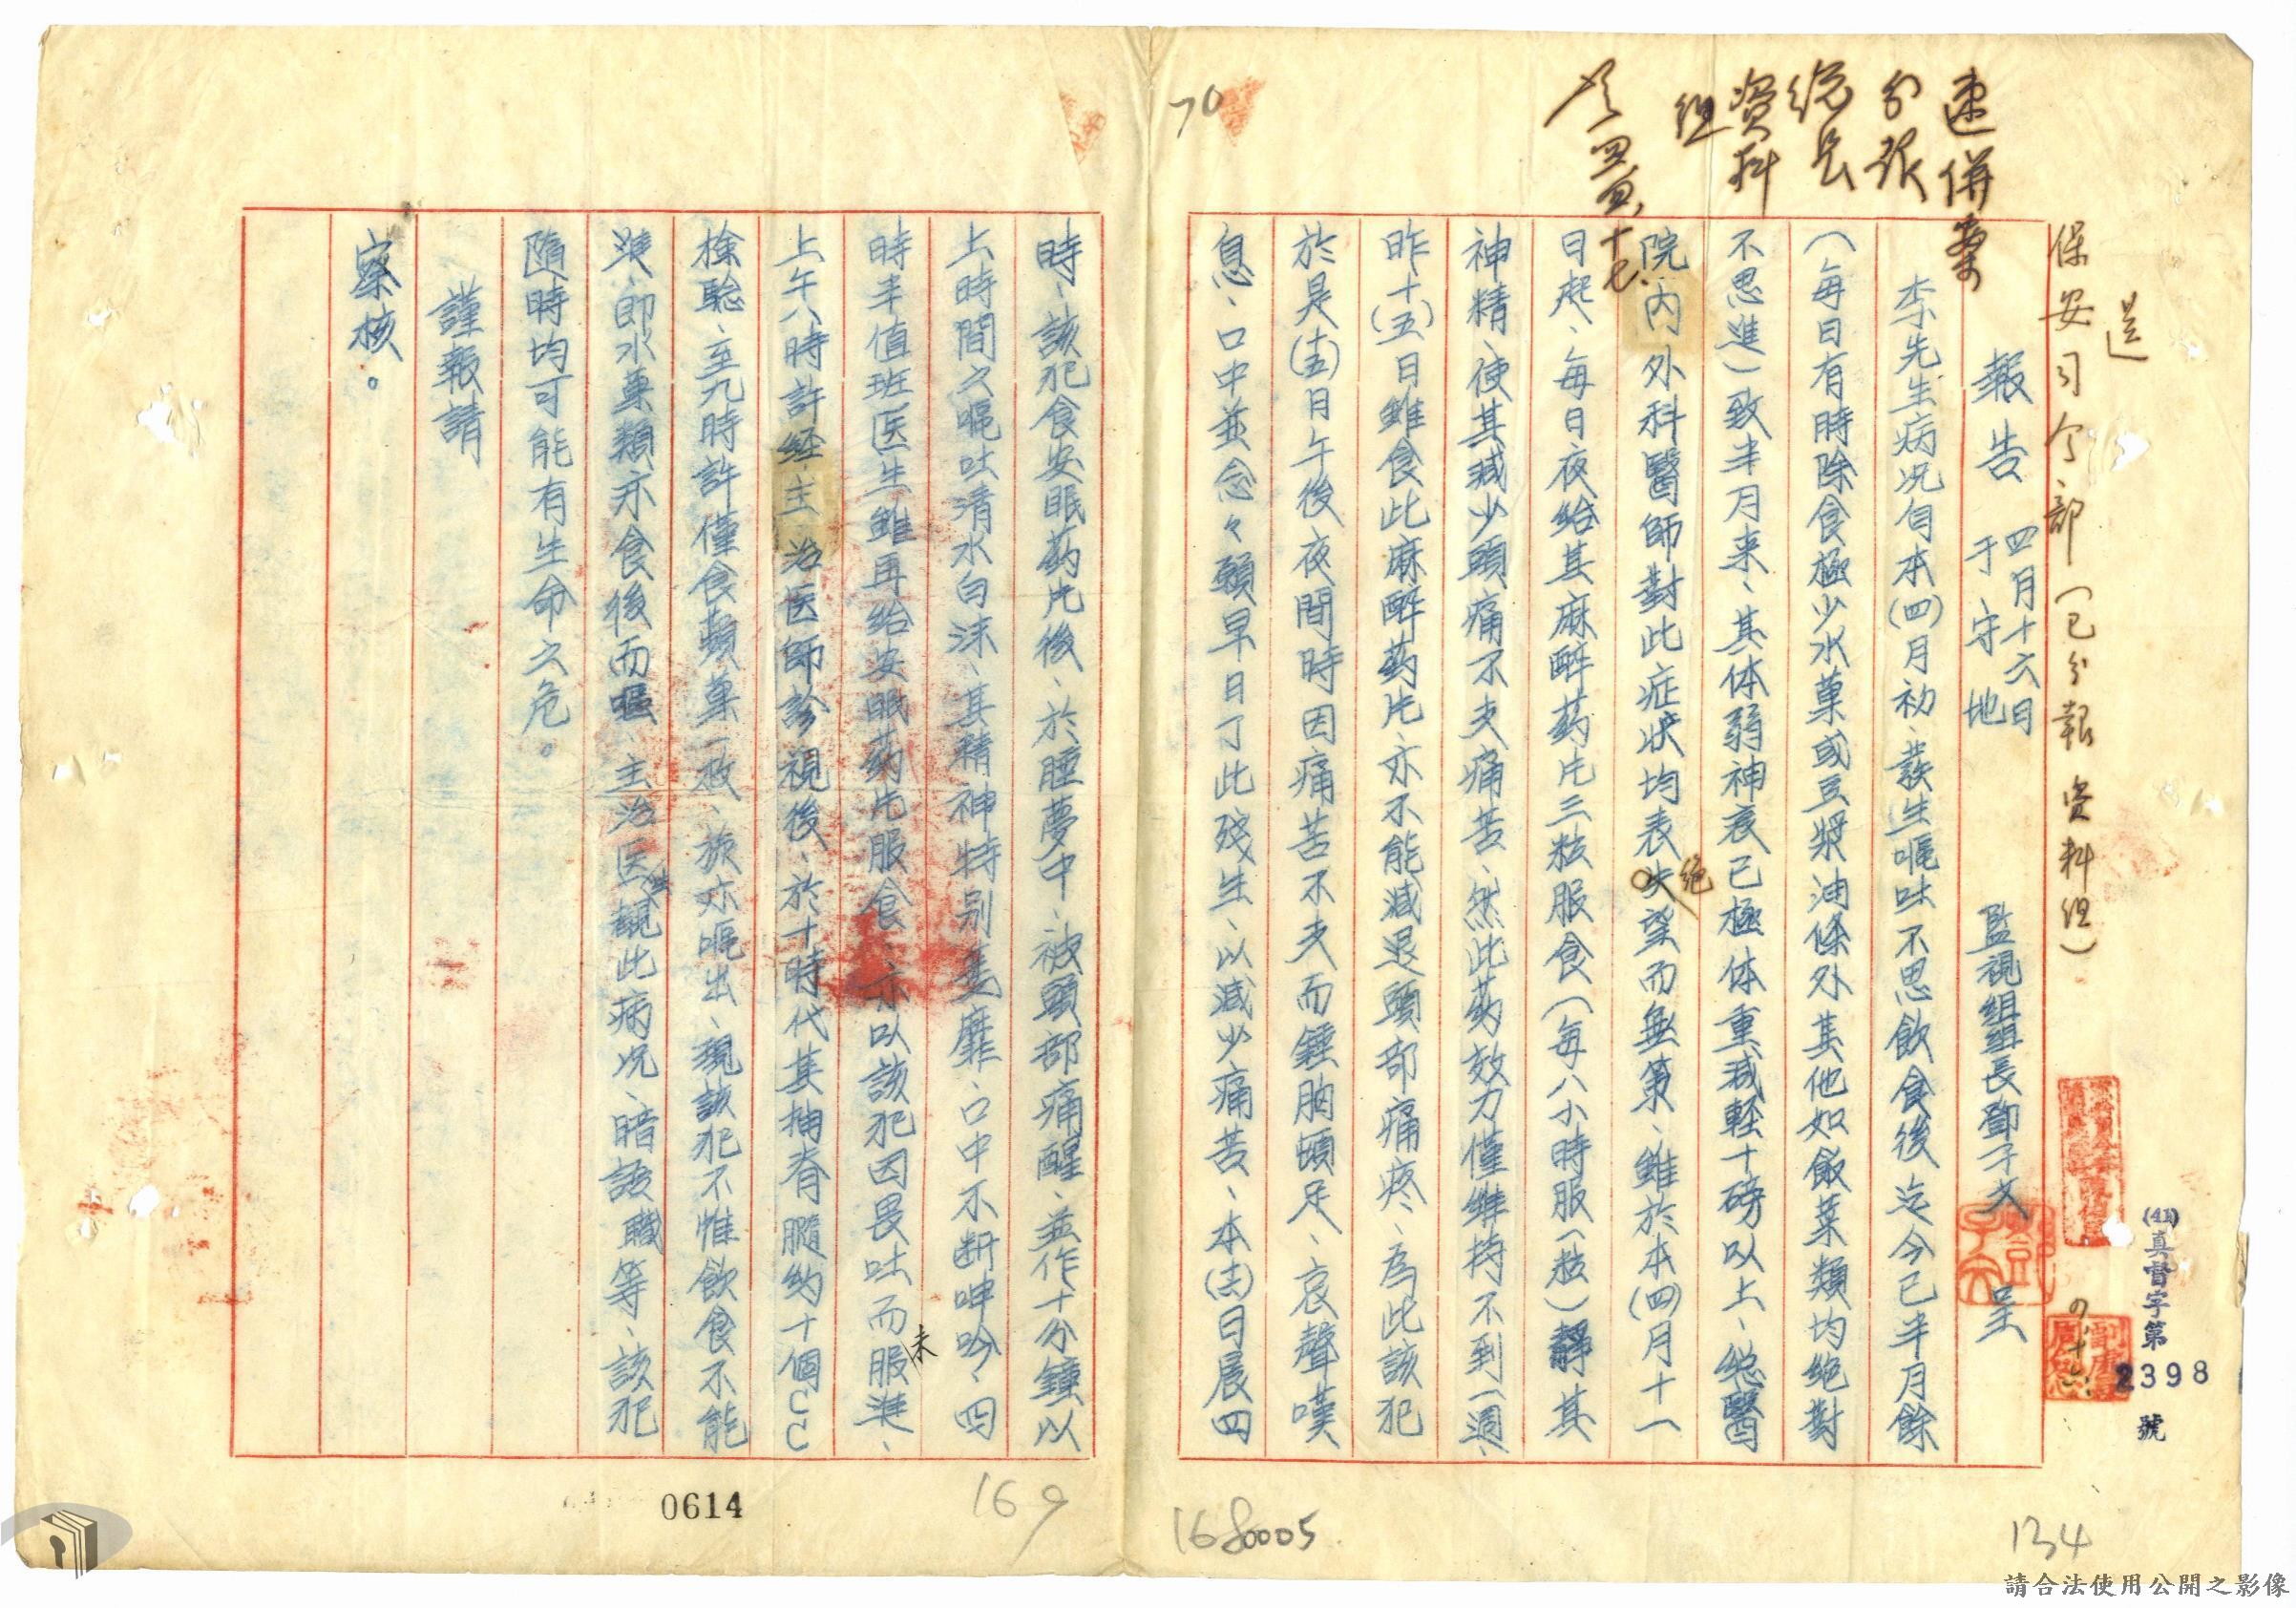 送
保安司令部（已分報資料組）
速併案
分張
組長
資料
組
四、十七
報告 四月十六日
于守地
監視組組長鄧子文 呈
(41)真督字第2398號
四、十六
李先生病況自本(四)月初、發生嘔吐不思飲食後迄今已半月餘
（每日有時除食極少水菓或豆漿油條外其他如飯菜類均絕對
不思進）致半月來、其体弱神衰已極体重減輕十磅以上、總醫
院、內外科醫師對此症狀均表失絕望而無策、雖於本(四)月十一
日起、每日夜給其麻醉葯片三粒服食（每八小時服一粒）靜其
神精、使其減少頭痛不支痛苦、然此葯效力僅維持不到一週、
昨十(五)日雖食此麻醉葯片、亦不能減退頭部痛疼、為此該犯
於是(十五)日午後夜間時因痛苦不支而錘胸頓足、哀聲嘆
息、口中並念々願早日丁此殘生、以減少痛苦、本(十六)日晨四
時、該犯食安眠葯片後、於睡夢中、被頭部痛醒、並作十分鐘以
上時間之嘔吐清水白沫、其精神特別萎靡、口中不断呻吟、四
時半值班医生雖再給安眠葯片服食、亦以該犯因畏吐而未服進、
上午八時許経主治医師診視後、於十時代其抽脊髓約十個CC
檢驗、至九時許僅食蘋菓一枚、旋亦嘔出、現該犯不惟飲食不能
進、即水菓類亦食後而嘔、主治医生觀此病况、暗語職等、該犯
隨時均可能有生命之危。
謹報請
察核。
70
0614
169
168
0005
134
請合法使用公開之影像